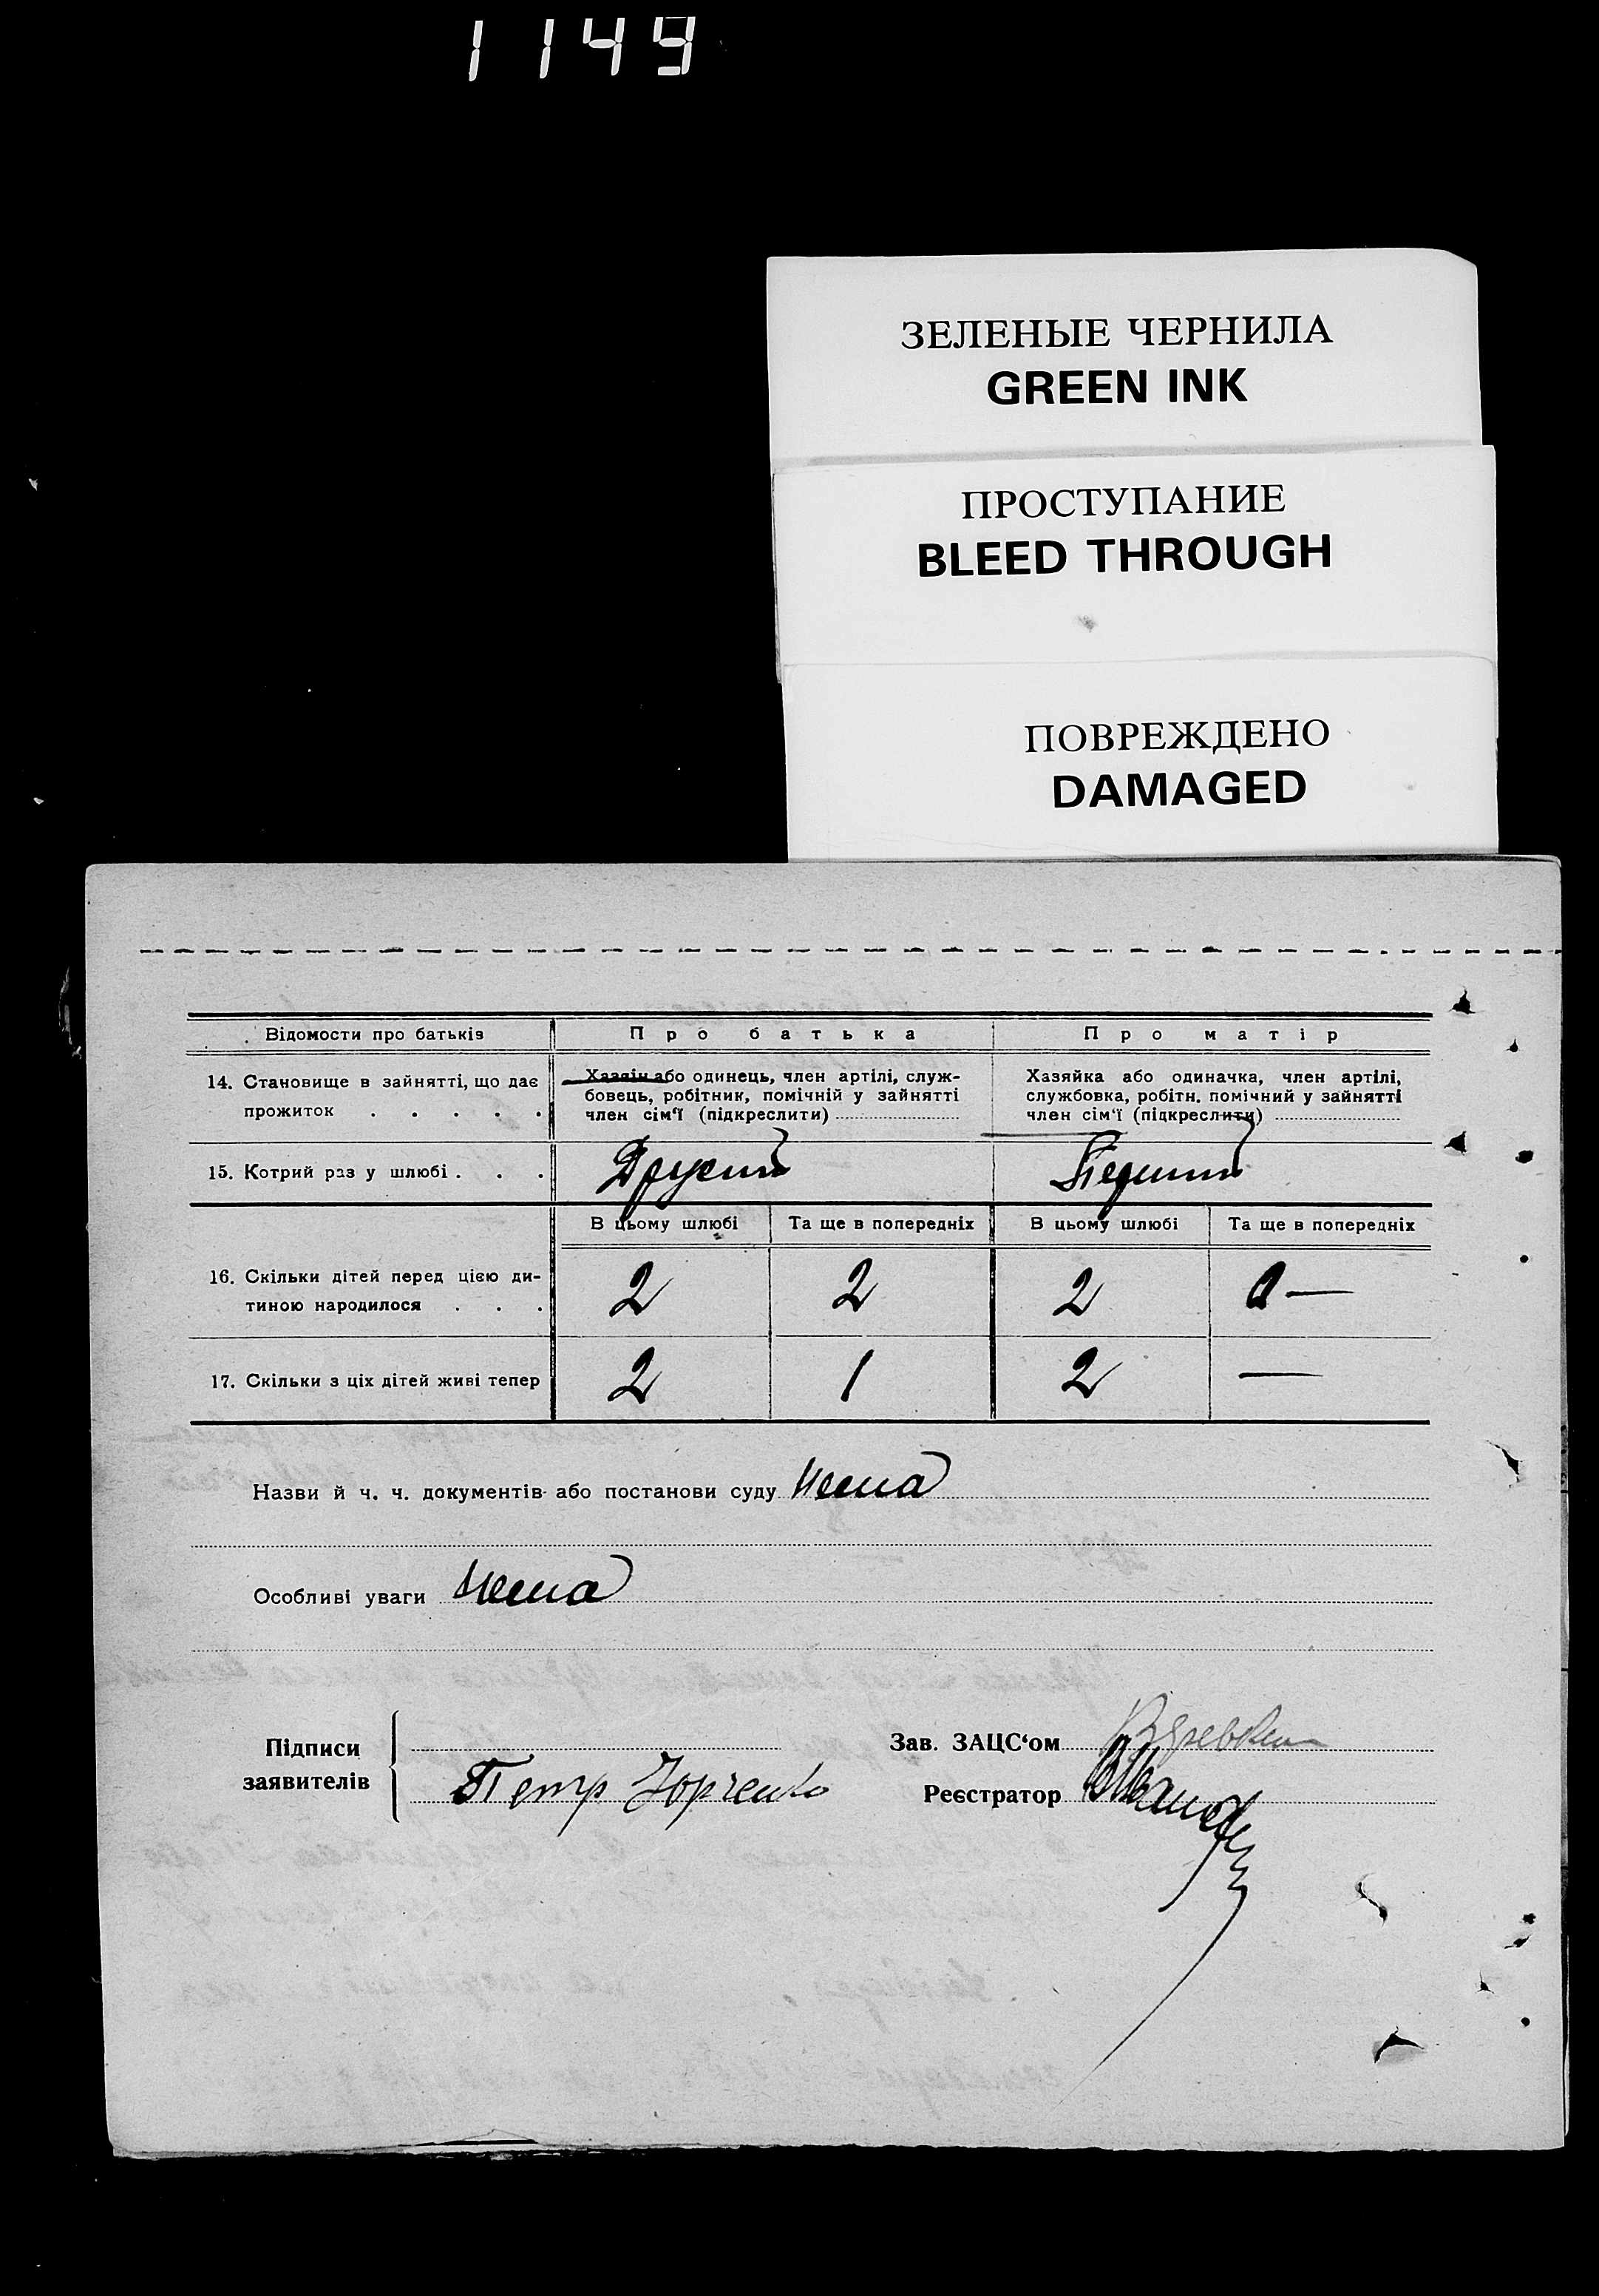 1149
ЗЕЛЕНЫЕ ЧЕРНИЛА
GREEN INK
ПРОСТУПАНИЕ
BLEED THROUGH
ПОВРЕЖДЕНО
DAMAGED
Відомости про батьків Про батька Про матір
14. Становище в зайнятті, що дає прожиток . . . . .
Хазяїн або одинець, член артілі, служ-
бовець, робітник, помічній у зайнятті
член сім'ї (підкреслити)
Хазяйка або одиначка, член артілі,
службовка, робітн. помічний у зайнятті
член сім'ї (підкреслити)
15. Котрий раз у шлюбі . . . Другий Перший
В цьому шлюбі Та ще в попередніх В цьому шлюбі Та ще в попередніх
16. Скільки дітей перед цією ди-
тиною народилося . . . 2 2 2 —
17. Скільки з ціх дітей живі тепер 2 1 2 —
Назви й ч. ч. документів або постанови суду Нема
Особливі уваги Нема
Підписи
заявителів
Петр Юрченко
Зав. ЗАЦС'ом
Реєстратор